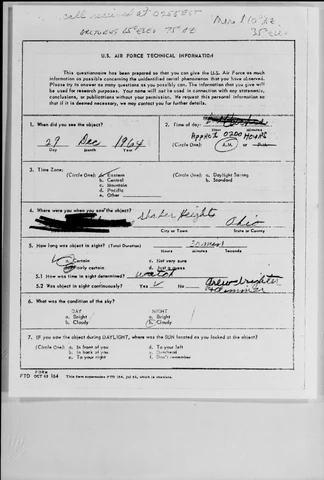 call received at 0255 EST
Arcturus 15° ELEV 75° AZ
35° ELEV
U. S. AIR FORCE TECHNICAL INFORMATION
This questionnaire has been prepared so that you can give the U.S. Air Force as much
information as possible concerning the unidentified aerial phenomenon that you have observed.
Please try to answer as many questions as you possibly can. The information that you give will
be used for research purposes. Your name will not be used in connection with any statements,
conclusions, or publications without your permission. We request this personal information so
that if it is deemed necessary, we may contact you for further details.
1. When did you see the object?
29 Dec 1964
Day Month Year
2. Time of day:
Approx 0200 Hours
Hour Minutes
(Circle One): A.M. or P.M.
3. Time Zone:
(Circle One): a. Eastern
b. Central
c. Mountain
d. Pacific
e. Other
(Circle One): a. Daylight Saving
b. Standard
4. Where were you when you saw the object?
Shaker Heights Ohio
City or Town State or County
5. How long was object in sight? (Total Duration)
20 min
Hours Minutes Seconds
a. Certain
b. Fairly certain
c. Not very sure
d. Just a guess
5.1 How was time in sight determined? watch
5.2 Was object in sight continuously? Yes ✓ No
grew brighter
& dimmer
6. What was the condition of the sky?
DAY
a. Bright
b. Cloudy
NIGHT
a. Bright
b. Cloudy
7. IF you saw the object during DAYLIGHT, where was the SUN located as you looked at the object?
(Circle One): a. In front of you
b. In back of you
c. To your right
d. To your left
e. Overhead
f. Don't remember
FORM
FTD OCT 62 164 This form supersedes FTD 164, Jul 61, which is obsolete.